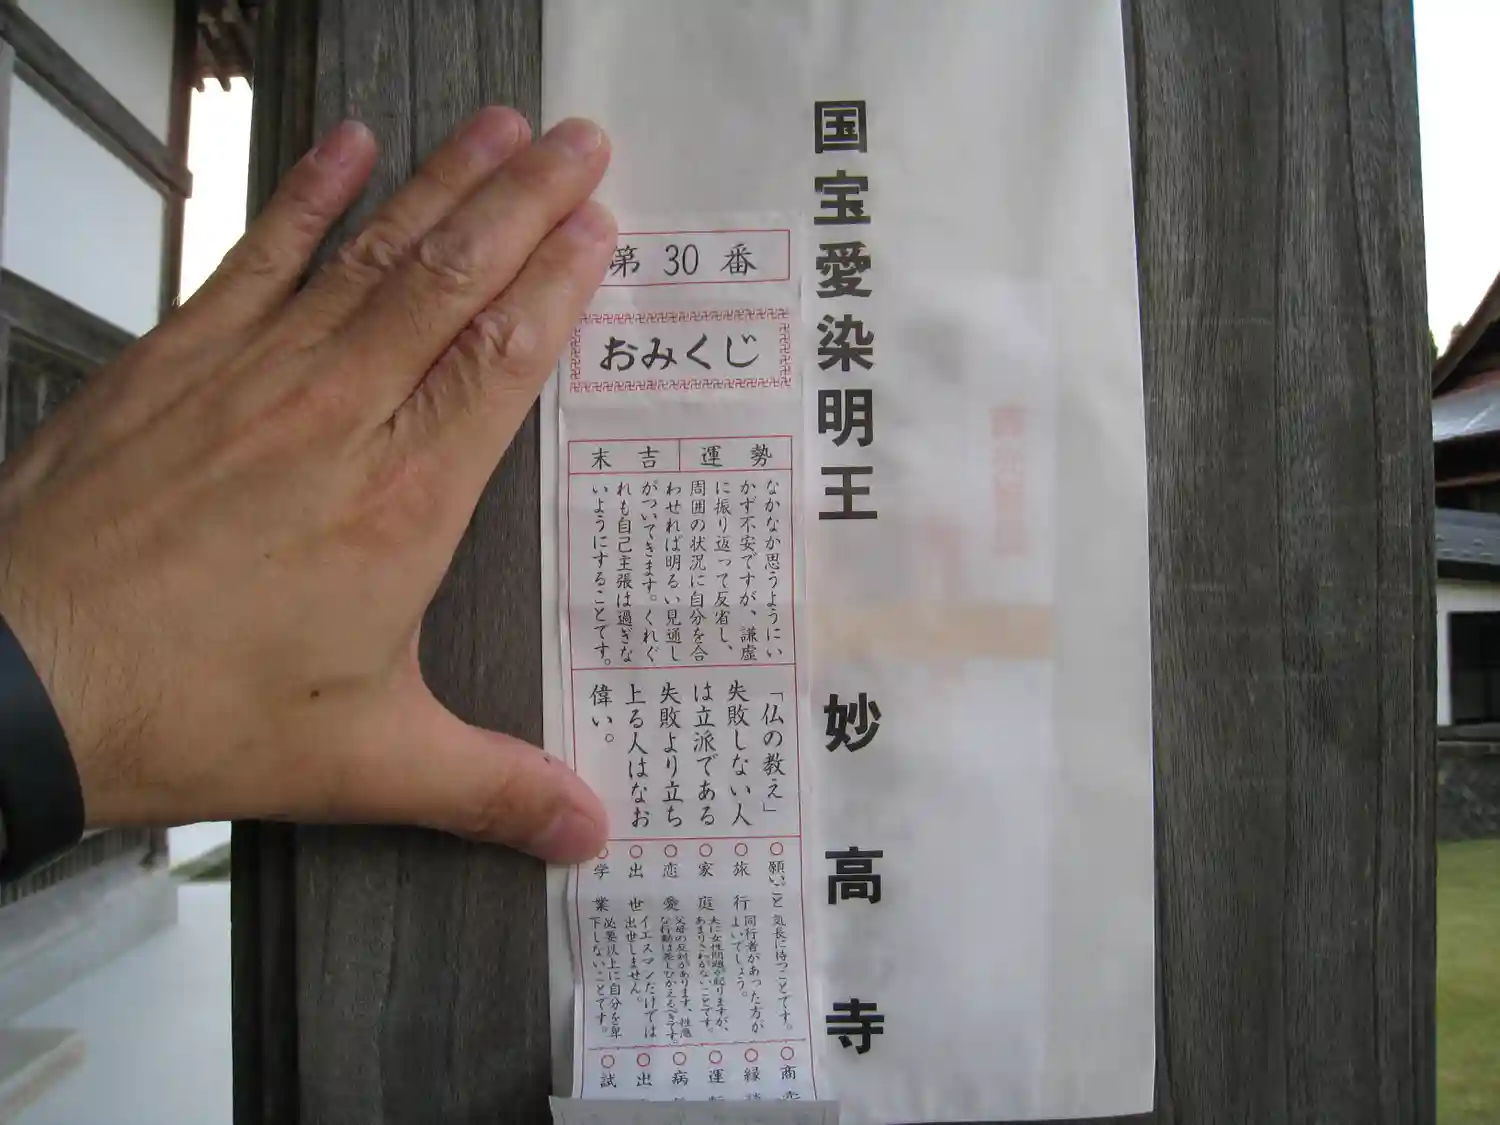 国宝愛染明王 妙高寺
第30番
おみくじ
運勢
末吉
なかなか思うようにい
かず不安ですが、謙虚
に振り返って反省し、
周囲の状況に自分を合
わせれば明るい見通し
がついてきます。くれぐ
れも自己主張は過ぎな
いようにすることです。
「仏の教え」
失敗しない人
は立派である
失敗より立ち
上る人はなお
偉い。
○願いごと 気長に待つことです。
○旅行 同行者があった方が
よいでしょう。
○家庭 夫に女性問題が起りますが、
あまりさわがないことです。
○恋愛 父母の反対があります。性急
な行動は差しひかえるべきです。
○出世 イエスマンだけでは
出世しません。
○学業 必要以上に自分を卑
下しないことです。
○商売
○縁談
○運
○病
○出
○試